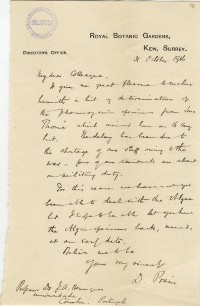 ROYAL BOTANIC GARDENS,
KEW, SURREY.
DIRECTORS OFFICE.
31 October 1916
My dear Colleague,
It gives me great pleasure to enclose
herewith a list of determinations of
the Phanerogamic specimens from San
Thomé which arrived here in
last. The delay has been due to
the shortage of our staff owing to the
war - four of our assistants are absent
on military duty.
For this reason we have not yet
been able to deal with the Algae
but I hope to be able to let you have
the Algae specimens back, named,
at an early date.
Believe me to be
Yours very sincerely
D. Prain
Professor Dr J. A. Henriques
Universidade
Coimbra, Portugal